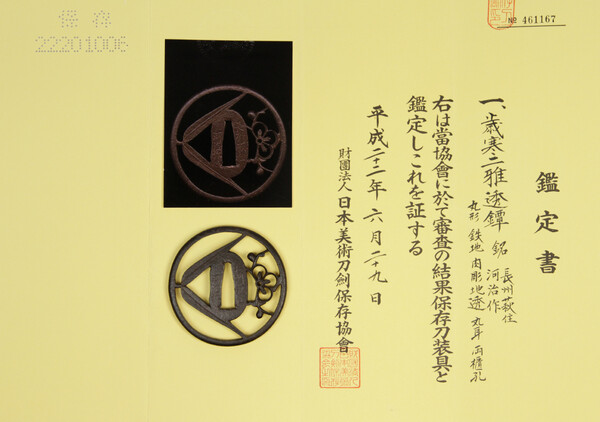 鑑定書
一、歳寒二雅透鐔 銘 長州萩住
河治作
丸形 鉄地 肉彫地透 丸耳 両櫃孔
右は當協會に於て審査の結果保存刀装具と
鑑定しこれを証する
平成二十二年六月二十九日
財團法人 日本美術刀劍保存協會
№ 461167
保存
22201006